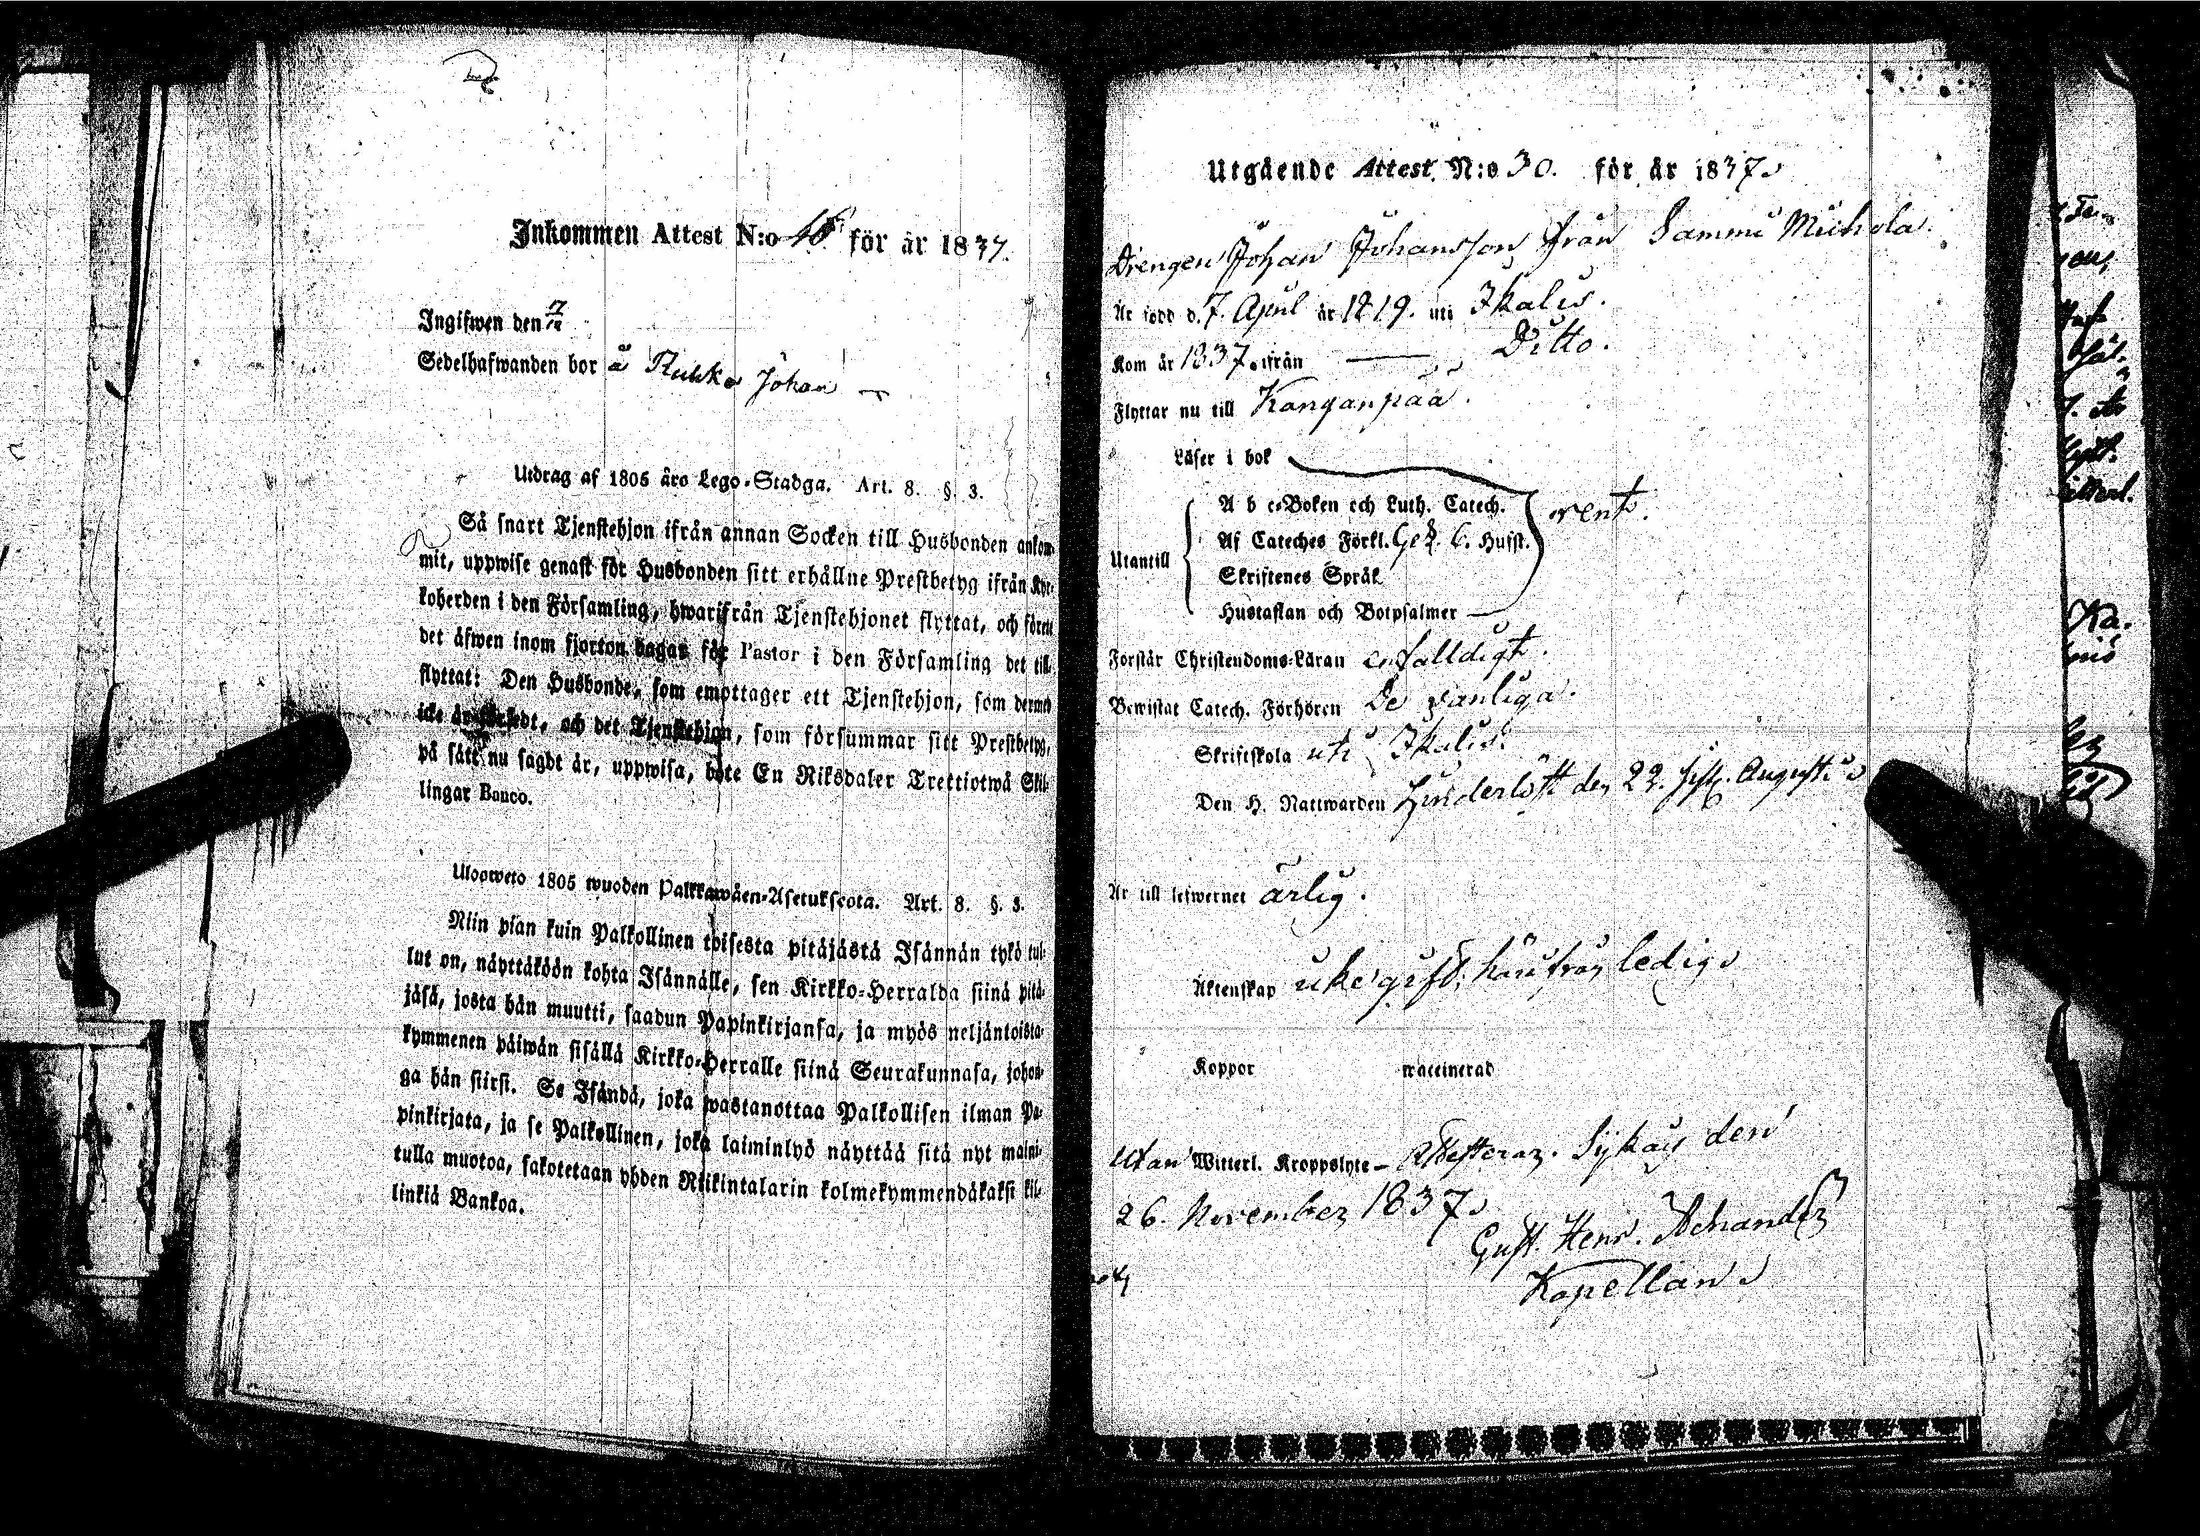 Inkommen Attest N:o 46 för år 1837.
Ingifwen den 7/12
Sedelhafwanden bor å Johan
Utdrag af 1805 års Lego-Stadga. Art. 8. §. 3.
Så snart Tjenstehjon ifrån annan Socken till Husbonden ankom-
mit, uppwise genast för Husbonden sitt erhållne Prestbetyg ifrån Kyr-
koherden i den Församling, hwarifrån Tjenstehjonet flyttat, och förete
det äfwen inom fjorton dagar för Pastor i den Församling det till-
flyttat: Den Husbonde, som emottager ett Tjenstehjon, som dermed
icke är försedt, och det Tjenstehjon, som försummar sitt Prestbetyg,
på sätt nu sagdt är, uppwisa, böte En Riksdaler Trettiotwå Skil-
lingar Banco.
Ulosweto 1805 wuoden Palkkawäen-Asetuksesta. Art. 8. §. 3.
Niin pian kuin Palkollinen toisesta pitäjästä Isännän tykö tul-
lut on, näyttäköön kohta Isännälle, sen Kirkko-Herralda siinä pitä-
jäsä, josta hän muutti, saadun Papinkirjansa, ja myös neljäntoista-
kymmenen päiwän sisällä Kirkko-Herralle siinä Seurakunnasa, johon-
ga hän siirsi. Se Isändä, joka wastanottaa Palkollisen ilman Pa-
pinkirjata, ja se Palkollinen, joka laiminlyö näyttää sitä nyt maini-
tulla muotoa, sakotetaan yhden Riikintalarin kolmekymmendäkaksi kil-
linkiä Bankoa.
Utgående Attest N:o 30. för år 1837.
Drengen Johan Johansson från Sammi
Är född d. 7. April år 1819. uti Ikalis.
Kom år 1837. ifrån — Ditto.
Flyttar nu till Kanganpää.
Läser i bok
A b c-Boken och Luth. Catech.
rent.
Af Cateches Förkl. Hufst.
Utantill
Skriftenes Språk
Hustaflan och Botpsalmer
Förstår Christendoms-Läran enfalldigt.
Bewistat Catech. Förhören De vanliga.
Skriftskola uti Ikalis.
Den H. Nattwarden den 22. Augusti
Är till lefwernet ärlig.
Äktenskap icke gift, härifrån ledig
Koppor waccinerad
utan Witterl. Kroppslyte – Attesterar. den
26. November 1837.
Gust. Henr.
Kapellan